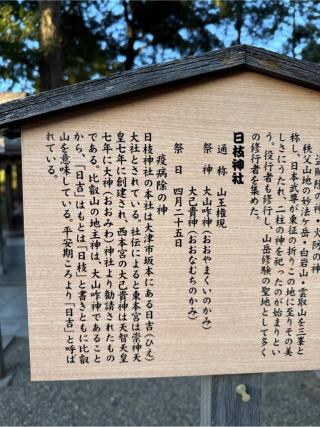 盗賊除の神・火防の神
秩父山地の妙法ヶ岳・白岩山・雲取山を三峯と
称し、日本武尊が東征の折りこの地に至りその美
しさにうたれ、二柱の神を祀ったのが始まりとい
う。役行者も修行し、山岳修験の聖地として多く
の修行者を集めた。
日枝神社
通称 山王権現
祭神 大山咋神(おおやまくいのかみ)
大己貴神(おおなむちのかみ)
祭日 四月二十五日
疫病除の神
日枝神社の本社は大津市坂本にある日吉(ひえ)
大社とされている。社伝によると東本宮は崇神天
皇七年に創建され、西本宮の大己貴神は天智天皇
七年に大神(おおみわ)神社より勧請されたもの
である。比叡山の地主神は、大山咋神であること
から、「日吉」はもとは「日枝」と書きともに比叡
山を意味している。平安期ころより「日吉」と呼ば
れている。